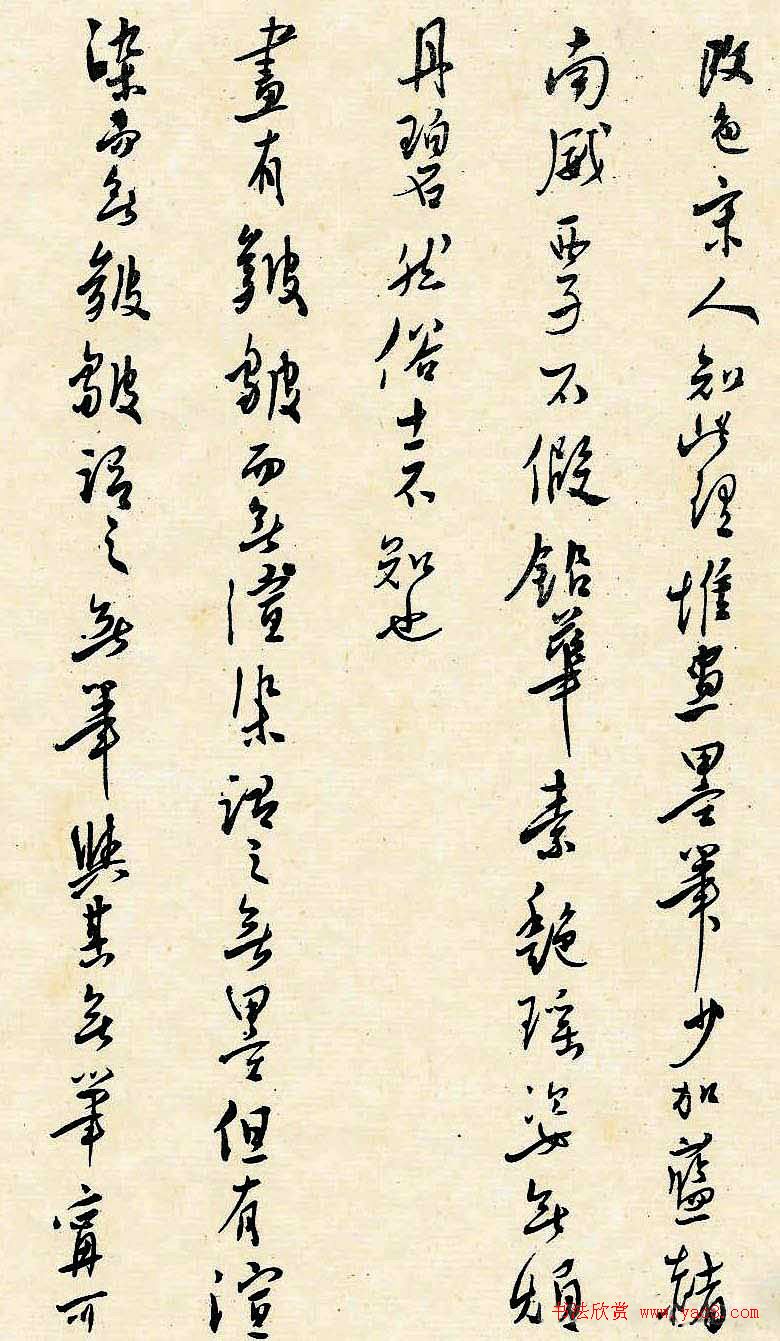 改色宋人知此理惟画墨筆少加藍赭
南威西子不假鉛華素艷瑶姿無煩
丹碧然俗士不知也
畫有皴皴而無渲染謂之無墨但有渲
染而無皴皴謂之無筆與其無筆寧可
书法欣赏 www.yac8.com